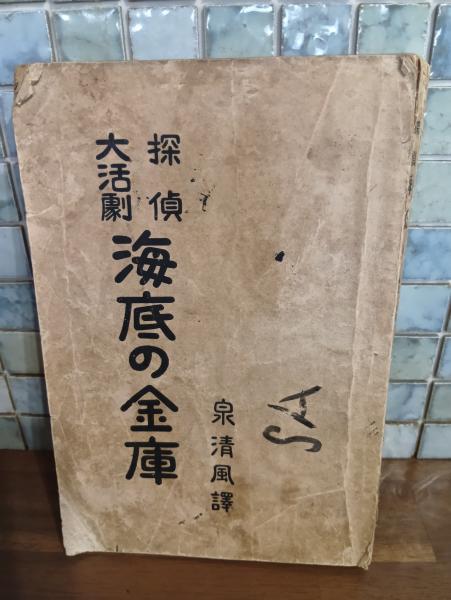 探偵
大活劇
海底の金庫
泉清風譯